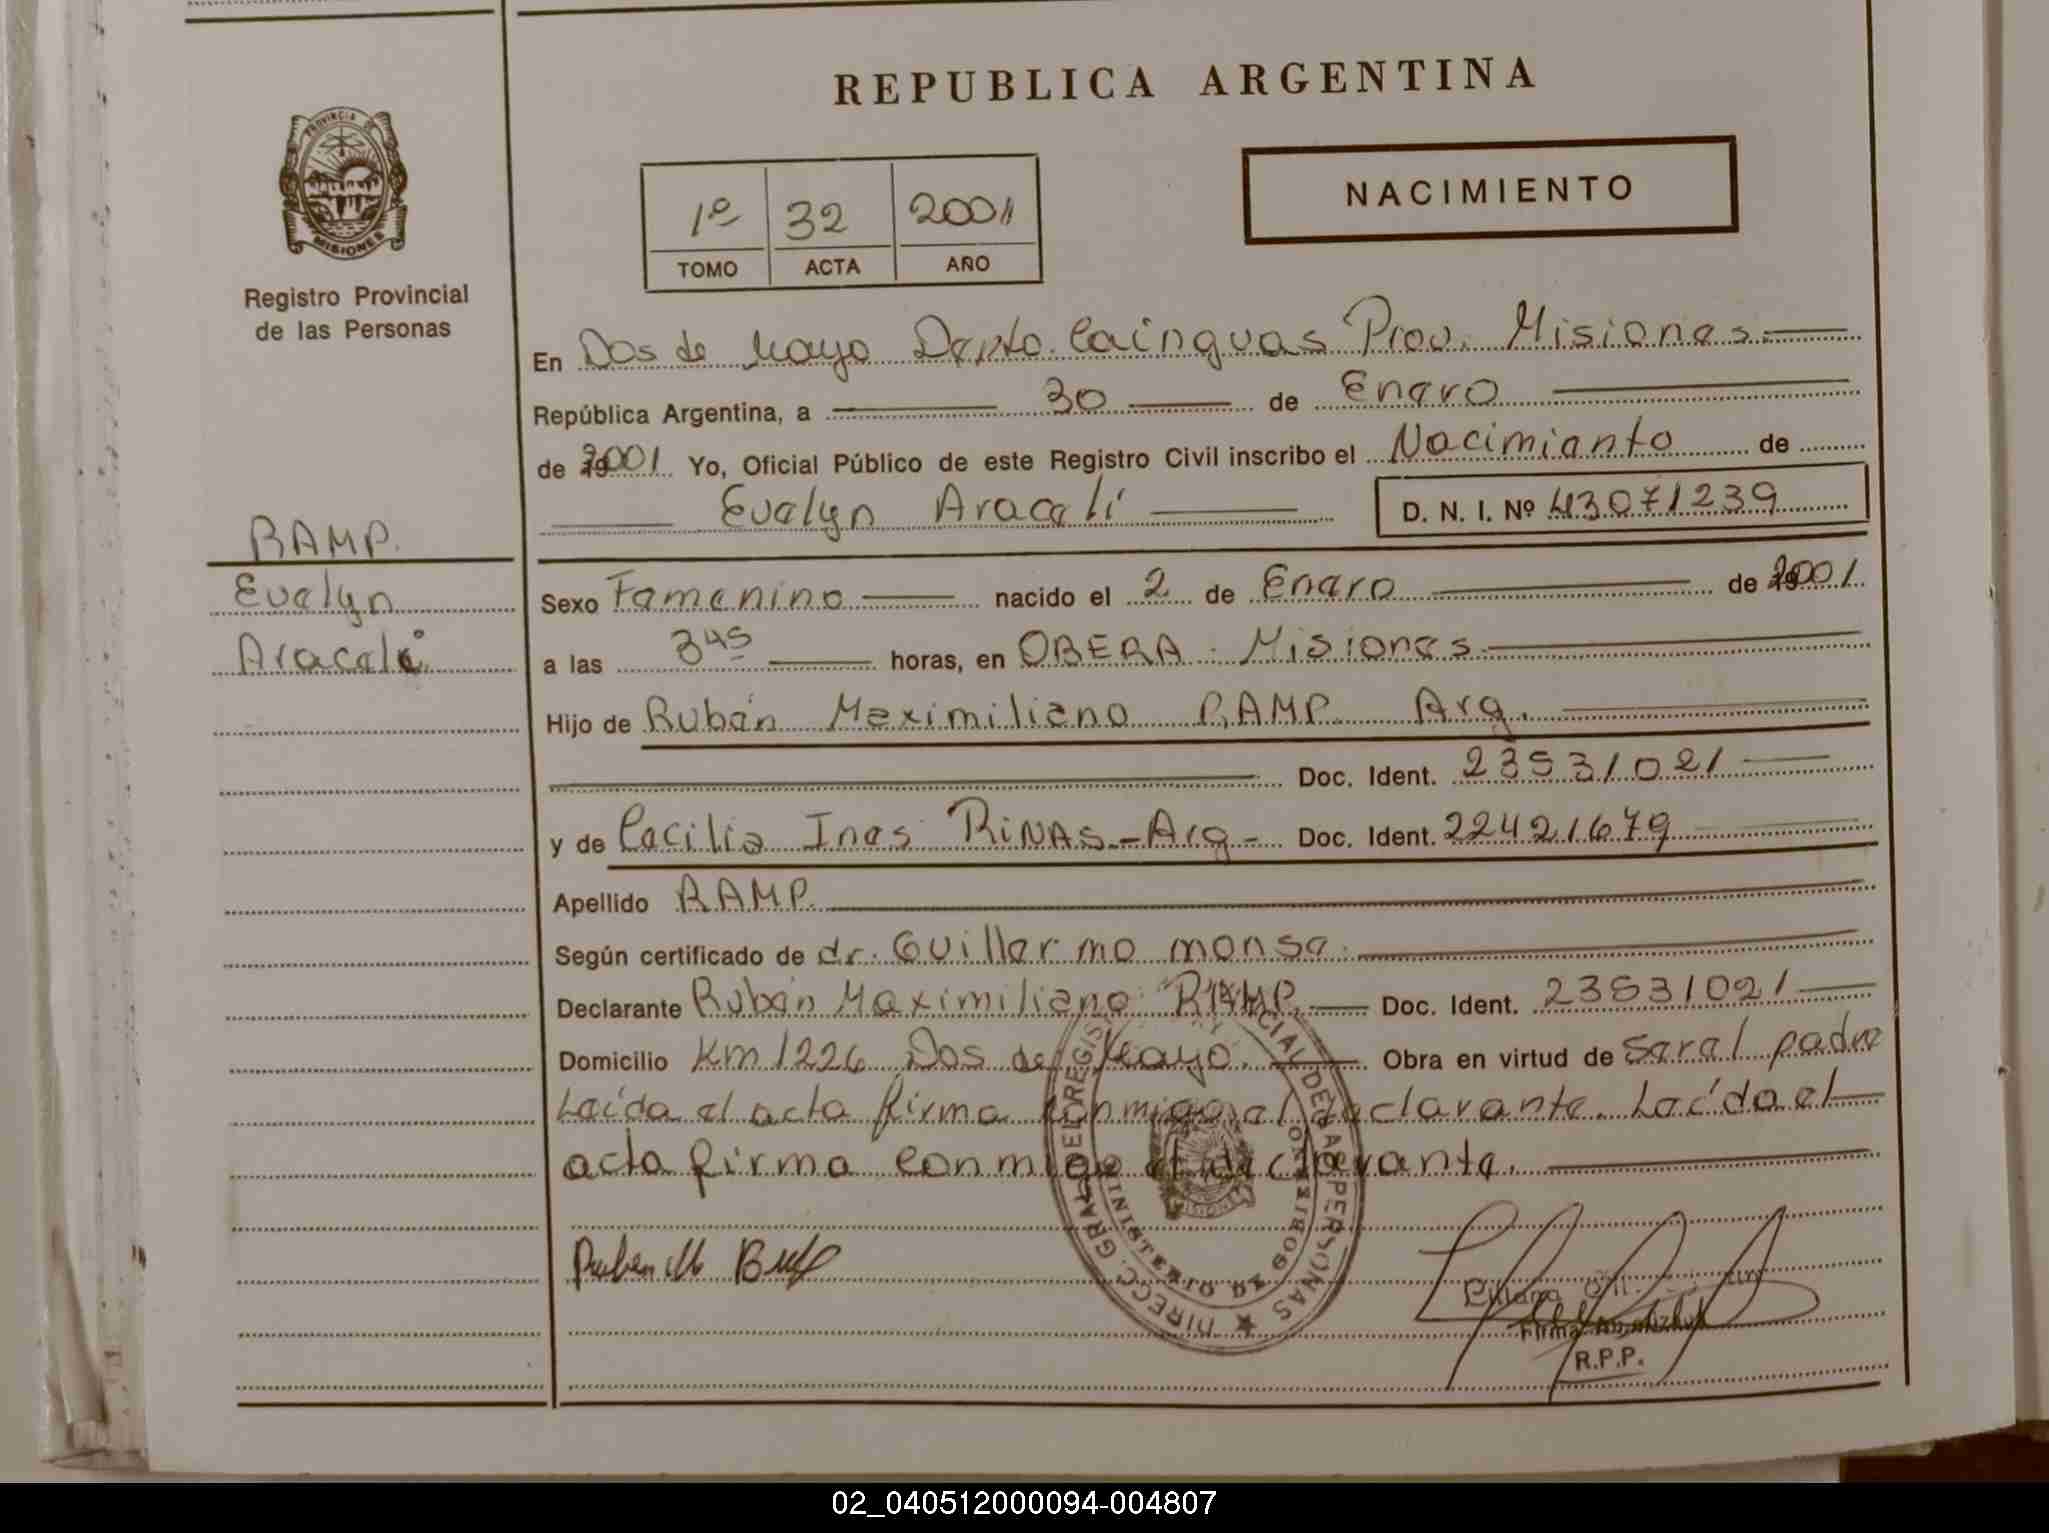 REPUBLICA ARGENTINA
PROVINCIA DE
MISIONES
Registro Provincial
de las Personas
1º 32 2001
TOMO ACTA AÑO
NACIMIENTO
En Dos de Mayo Depto. Cainguas Prov. Misiones.
República Argentina, a 30 de Enero
de 2001 Yo, Oficial Público de este Registro Civil inscribo el Nacimiento de
Evelyn Araceli D. N. I. Nº 43071239
RAMP.
Evelyn
Araceli
Sexo Femenino nacido el 2 de Enero de 2001
a las 3 45 horas, en OBERA. Misiones.
Hijo de Rubén Maximiliano RAMP. Arg.
Doc. Ident. 23531021
y de Cecilia Ines RiNAS - Arg - Doc. Ident. 22421679
Apellido RAMP.
Según certificado de dr. Guillermo monse.
Declarante Rubén Maximiliano RAMP. Doc. Ident. 23531021
Domicilio Km 1226 Dos de Mayo. Obra en virtud de ser el padre
Leída el acta firma conmigo el declarante. Leída el
acta firma conmigo el declarante.
DIRECC. GRAL. DEL REGIS CIAL DE LAS PERSONAS
MINISTERIO DE GOBIERNO
Liliana
R.P.P.
02_040512000094-004807